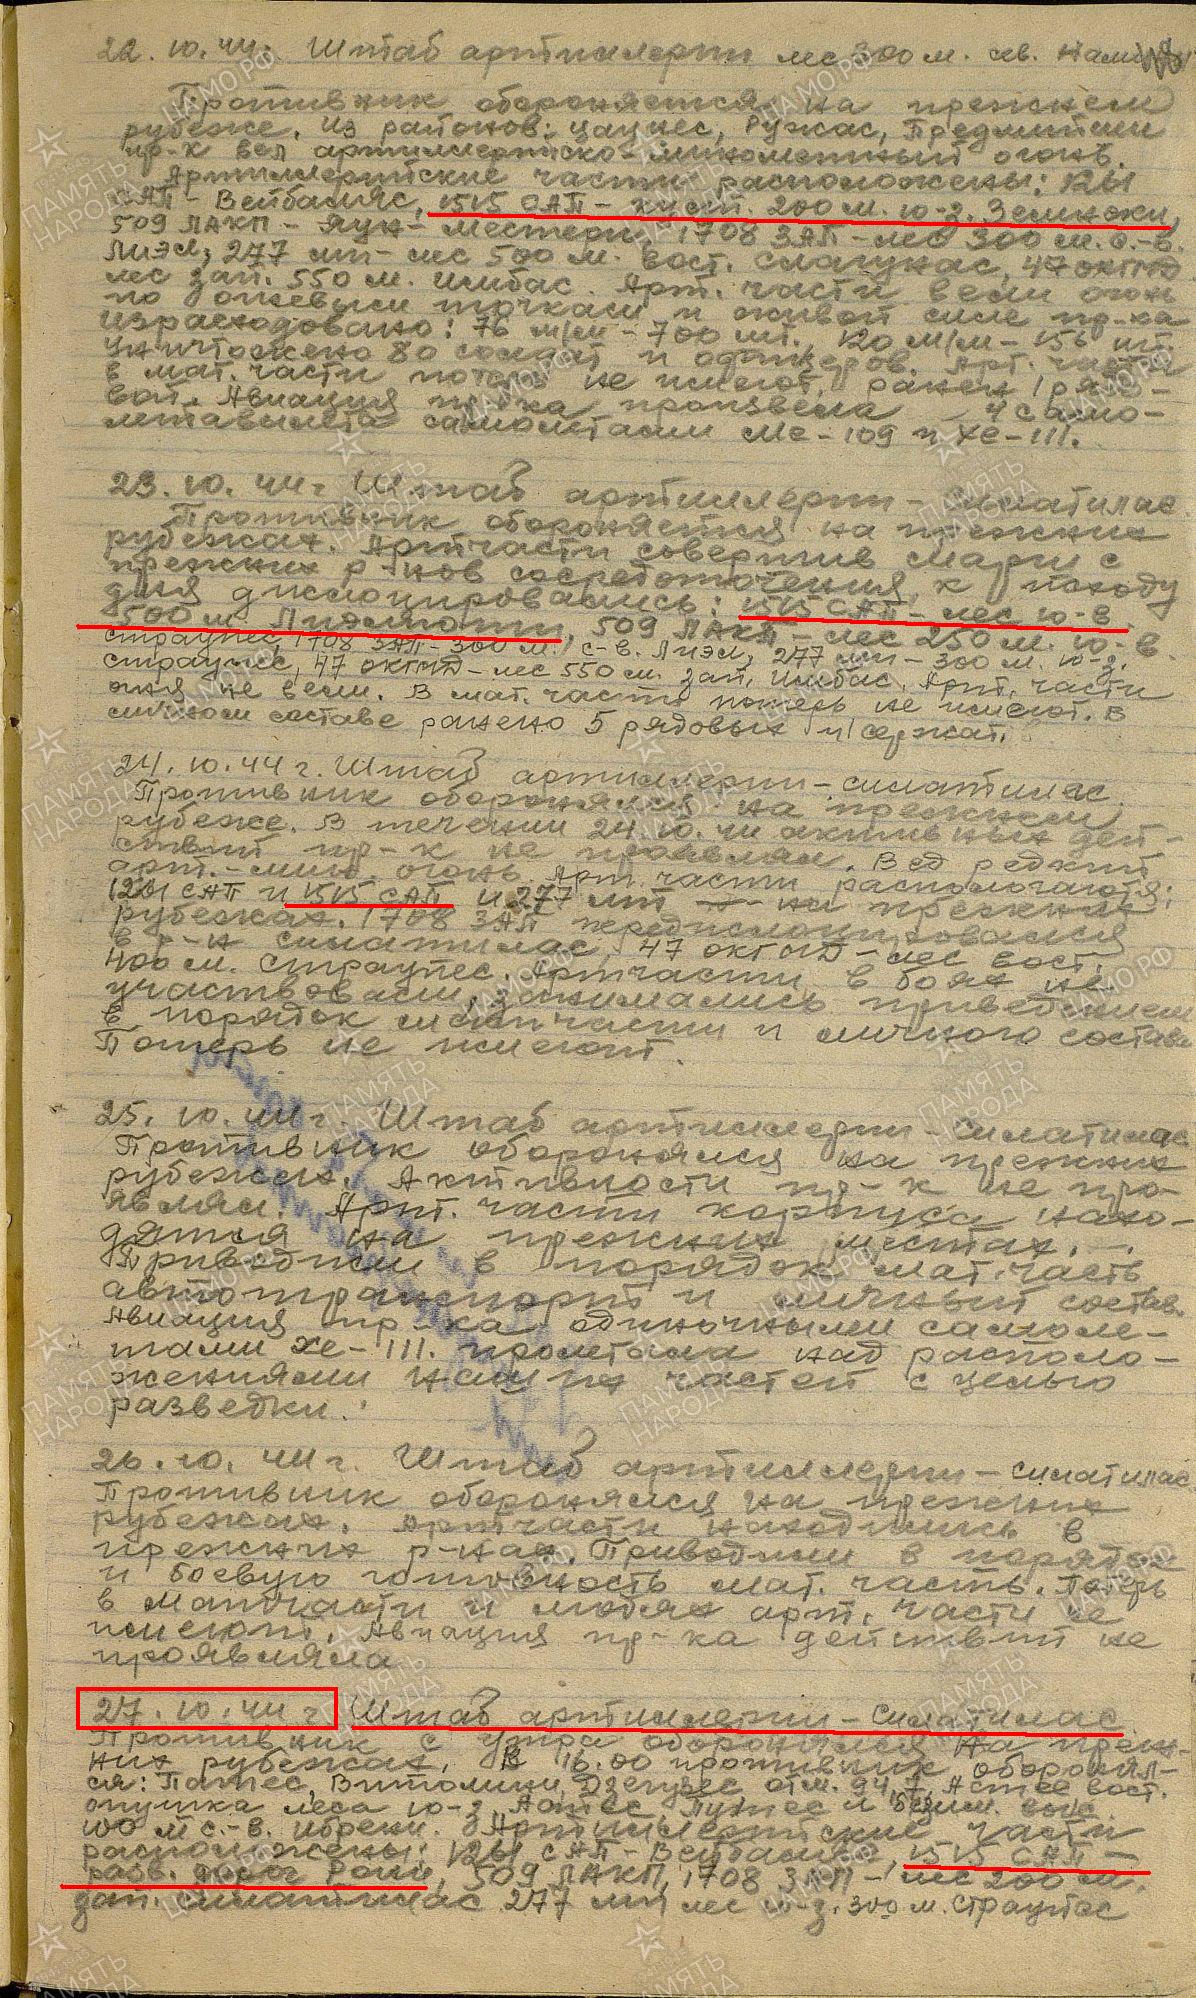 22. 10. 44г. Штаб артиллерии лес 300 м. сев.
Противник обороняется на прежнем
рубеже. Из районов: Цаунес, Ружас,
пр-к вел артиллерийско-минометный огонь.
Артиллерийские части расположены: 1261
САП - Вейбаляс, 1515 САП - куст. 200 м. ю-з. Земнюки,
509 ЛАКП - Яун-местери, 1708 ЗАП - лес 300 м. с.-в.
Лиэл, 277 мп - лес 500 м. вост. Слагунас, 47 ОКГМД
лес зап. 550 м. Илибас. Арт. части вели огонь
по огневым точкам и живой силе пр-ка
израсходовано: 76 м/м - 700 шт., 120 м/м - 156 шт.
Уничтожено 80 солдат и офицеров. Арт. части
в мат. части потерь не имеют, ранен 1 рядо-
вой. Авиация пр-ка произвела 4 само-
летавылета самолетами Ме-109 и Хе-111.
23. 10. 44 г. Штаб артиллерии - Силатилас
Противник обороняется на прежних
рубежах. Артчасти совершив марш с
прежних р-нов сосредоточения, к исходу
дня дислоцировались: 1515 САП - лес ю-в.
500 м. 509 ЛАКП - лес 250 м. ю-в.
Страупес, 1708 ЗАП - 300 м. с-в. Лиэл, 277 мп - 300 м. ю-з.
Страупес, 47 ОКГМД - лес 550 м. зап. Илибас. Арт. части
огня не вели. В мат. части потерь не имеют. В
личном составе ранено 5 рядовых и сержант.
24. 10. 44 г. Штаб артиллерии - Силатилас.
Противник оборонялся на прежнем
рубеже. В течении 24.10.44 активных дей-
ствий пр-к не проявлял. Вел редкий
арт.-мин. огонь. Арт. части располагаются:
1261 САП и 1515 САП и 277 мп - на прежних
рубежах. 1708 ЗАП передислоцировался
в р-н Силатилас, 47 ОКГМД - лес вост.
400 м. Страупес. Артчасти в боях не
участвовали, занимались приведением
в порядок матчасти и личного состава
Потерь не имеют.
25. 10. 44 г. Штаб артиллерии - Силатилас
Противник оборонялся на прежних
рубежах. Активности пр-к не про-
являл. Арт. части корпуса нахо-
дятся на прежних местах. -
Приводили в порядок мат. часть
автотранспорт и личный состав.
Авиация пр-ка одиночными самоле-
тами Хе-111. пролетала над располо-
жениями наших частей с целью
разведки.
26. 10. 44 г. Штаб артиллерии - Силатилас
Противник оборонялся на прежних
рубежах. Артчасти находились в
прежних р-нах. Приводили в порядок
и боевую готовность мат. часть. Потерь
в матчасти и людях арт. части не
имеют. Авиация пр-ка действий не
проявляла
27. 10. 44 г. Штаб артиллерии - Силатилас
Противник с утра оборонялся на преж-
них рубежах. В 16.00 противник оборонял-
ся: Витолини, Дзелзес, отм. 94,7, вост.
опушка леса ю-з. и безим. выс.
100 м с.-в. Артиллерийские части
расположены: 1261 САП - Вейбаляс, 1515 САП -
разв. дорог Рони, 509 ЛАКП, 1708 ЗАП - лес 200 м.
зап. Силатилас 277 мп лес ю-з. 300 м. Страупес
ПАМЯТЬ НАРОДА
ЦАМО РФ